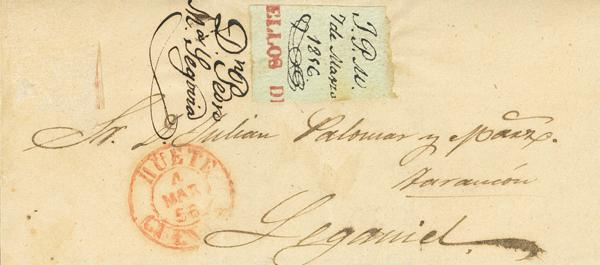 Dn Pedro
Ma Segovia
J. P. M.
7 de Marzo
1856
ELLOS D
Sr. D. Julian Palomar y
Tarancón
Leganiel.
HUETE
4
MAR
56
CUEN